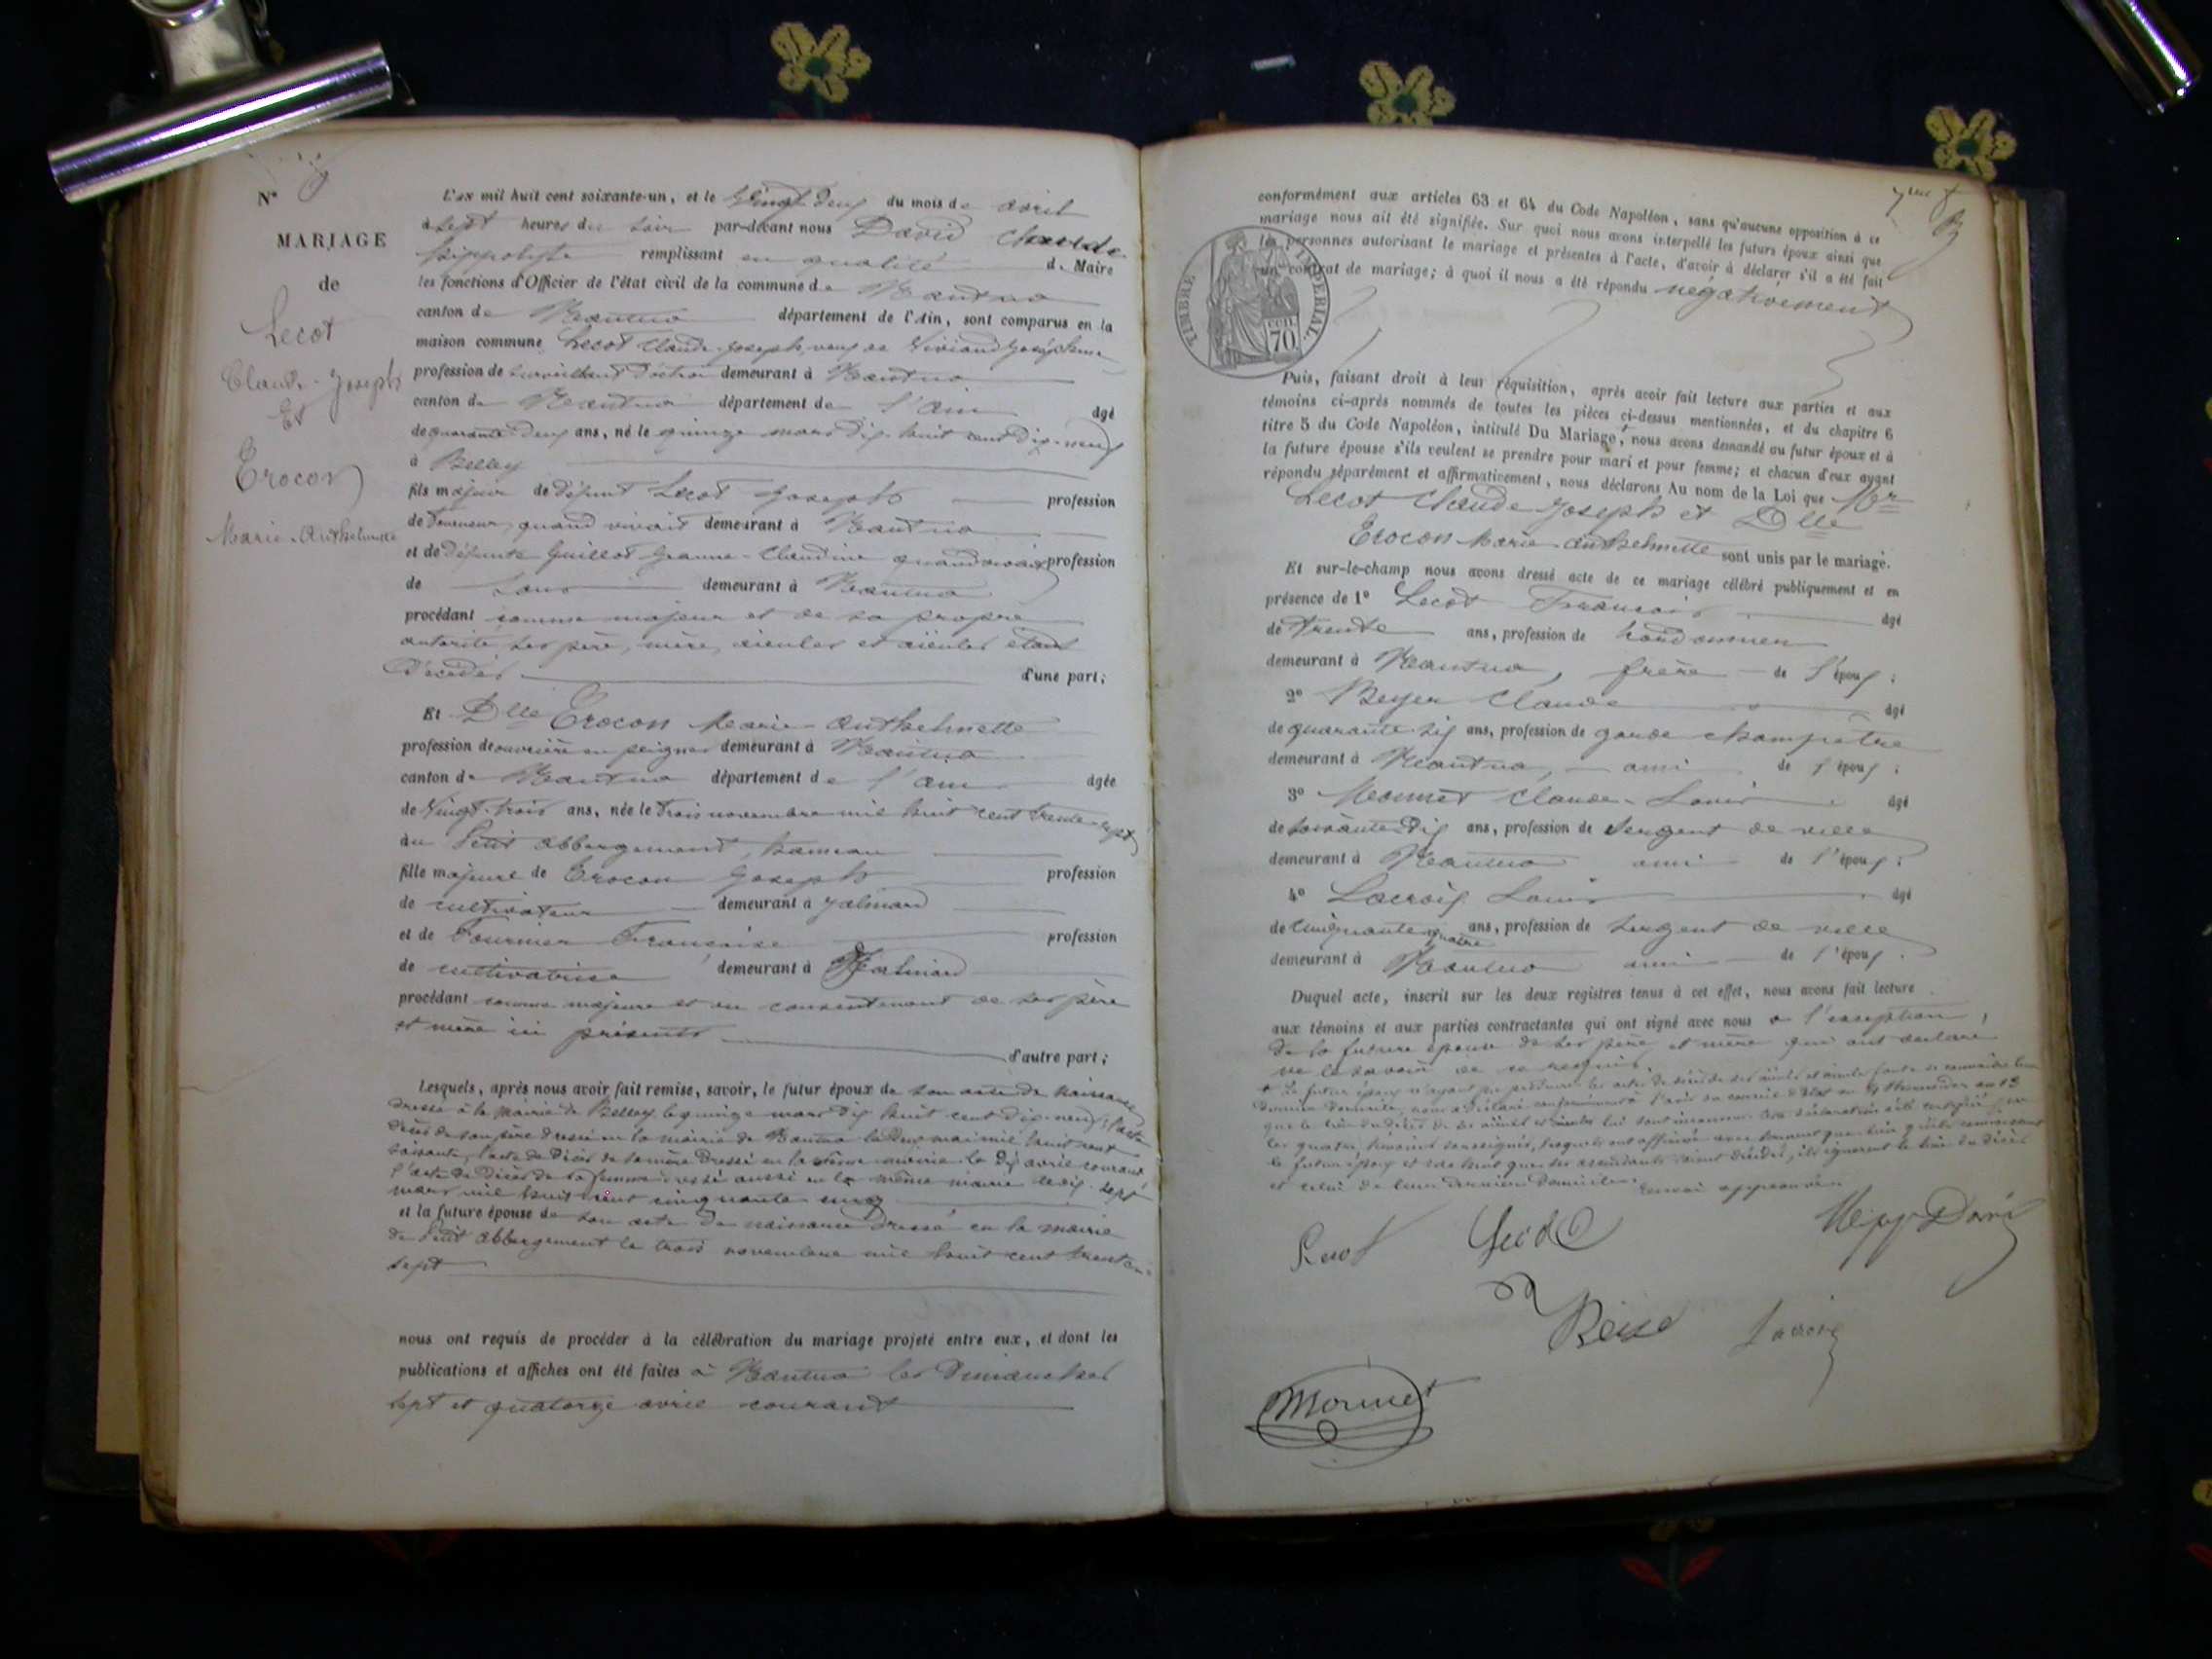 N°
MARIAGE
de
Lecot
Claude-Joseph
Et
Crocon
Marie-Anthelmette
L'an mil huit cent soixante-un, et le vingt deux du mois de avril
à sept heures du soir par-devant nous David Claude
hippolyte remplissant en qualité de Maire
les fonctions d'Officier de l'état civil de la commune de Nantua
canton de Nantua département de l'Ain, sont comparus en la
maison commune Lecot Claude Joseph, veuf de Viviand Joséphine
profession de surveillant d'octroi demeurant à Nantua
canton de Nantua département de l'ain âgé
de quarante-deux ans, né le quinze mars dix-huit cent dix-neuf
à Belley
fils majeur de défunt Lecot Joseph profession
de quand vivait demeurant à Nantua
et de défunte Guillot Jeanne-Claudine quand vivait profession
de sans demeurant à Nantua
procédant comme majeur et de sa propre
autorité ses père, mère, aieules et aieules étant
Décédés d'une part;
Et Dlle Crocon Marie-Anthelmette
profession de ouvrière en peignes demeurant à Nantua
canton de Nantua département de l'ain âgée
de vingt-trois ans, née le trois novembre mil huit cent trente-sept
au Petit abbergement, hameau
fille majeure de Crocon Joseph profession
de cultivateur demeurant à Jalinard
et de Fournier Françoise profession
de cultivatrice demeurant à Jalinard
procédant comme majeure et du consentement de ses père
et mère ici présents
d'autre part;
Lesquels, après nous avoir fait remise, savoir, le futur époux de son acte de naissance
dressé à la Mairie de Belley, le quinze mars dix huit cent dix-neuf; l'acte
décès de son père dressé en la mairie de Nantua le deux mai mil huit cent
soixante, l'acte de Décès de sa mère dressé en la même mairie le dix avril courant
l'acte de Décès de sa femme dressé aussi en la même mairie le dix-sept
mars mil huit cent cinquante cinq
et la future épouse de son acte de naissance dressé en la mairie
de Petit abbergement le trois novembre mil huit cent trente-
sept
nous ont requis de procéder à la célébration du mariage projeté entre eux, et dont les
publications et affiches ont été faites à Nantua les dimanches
sept et quatorze avril courant
conformément aux articles 63 et 64 du Code Napoléon, sans qu'aucune opposition à ce
mariage nous ait été signifiée. Sur quoi nous avons interpellé les futurs époux ainsi que
les personnes autorisant le mariage et présentes à l'acte, d'avoir à déclarer s'il a été fait
un contrat de mariage; à quoi il nous a été répondu négativement
TIMBRE IMPÉRIAL.
CEN.
70
Puis, faisant droit à leur réquisition, après avoir fait lecture aux parties et aux
témoins ci-après nommés de toutes les pièces ci-dessus mentionnées, et du chapitre 6
titre 5 du Code Napoléon, intitulé Du Mariage, nous avons demandé au futur époux et à
la future épouse s'ils veulent se prendre pour mari et pour femme; et chacun d'eux ayant
répondu séparément et affirmativement, nous déclarons Au nom de la Loi que Mr
Lecot Claude Joseph et Dlle
Crocon Marie-Anthelmette sont unis par le mariage.
Et sur-le-champ nous avons dressé acte de ce mariage célébré publiquement et en
présence de 1° Lecot François âgé
de trente ans, profession de
demeurant à Nantua, frère de l'époux;
2° Beyer Claude âgé
de quarante-six ans, profession de garde champêtre
demeurant à Nantua, ami de l'époux;
3° Monnet Claude-Louis âgé
de soixante-dix ans, profession de Sergent de ville
demeurant à Nantua ami de l'époux;
4° Lacroix Louis âgé
de cinquante quatre ans, profession de Sergent de ville
demeurant à Nantua ami de l'époux.
Duquel acte, inscrit sur les deux registres tenus à cet effet, nous avons fait lecture
aux témoins et aux parties contractantes qui ont signé avec nous à l'exception
de la future épouse de ses père et mère qui ont déclaré
ne le savoir de ce requis.
Le futur époux n'ayant pu produire les actes de décès de ses aïeuls et aïeules faute de connaître leur
dernier domicile, nous a déclaré conformément à l'avis du conseil d'état du 4 thermidor an 13
que le lieu du décès de ses aïeuls et aïeules lui sont inconnus. Cette déclaration a été certifiée par
les quatre témoins soussignés, lesquels ont affirmé avec serment que bien qu'ils connaissent
le futur époux et que ses ascendants soient décédés, ils ignorent le lieu du décès
et celui de leur dernier domicile. Renvoi approuvé
Lecot Hipp David
Lacroix
Monnet